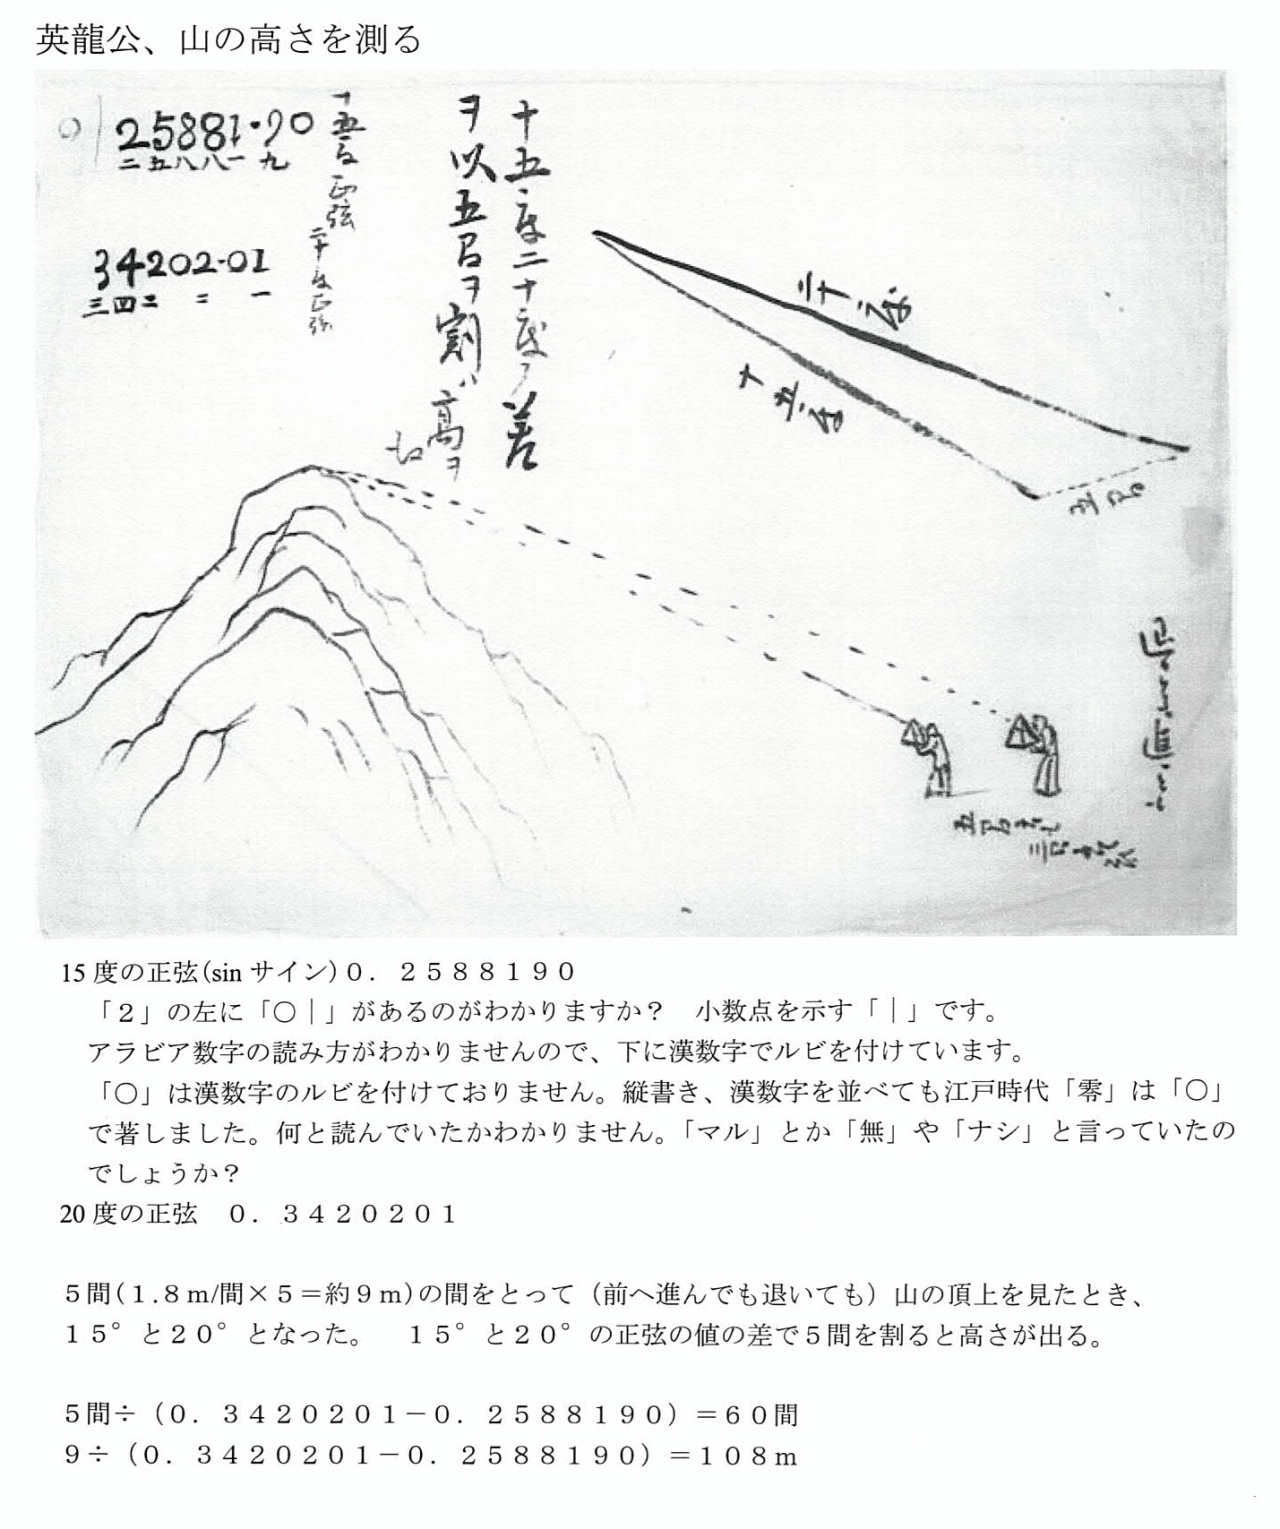 英龍公、山の高さを測る
〇|25881・90
二五八八一 九
十五度正弦
34202・01
三四二 二 一
二十度正弦
十五度二十度ノ差
ヲ以五間ヲ割ハ高ヲ
二十度
十五度
五間
15度の正弦(sinサイン)０．２５８８１９０
「２」の左に「〇｜」があるのがわかりますか？　小数点を示す「｜」です。
アラビア数字の読み方がわかりませんので、下に漢数字でルビを付けています。
「〇」は漢数字のルビを付けておりません。縦書き、漢数字を並べても江戸時代「零」は「〇」
で著しました。何と読んでいたかわかりません。「マル」とか「無」や「ナシ」と言っていたの
でしょうか？
20度の正弦　０．３４２０２０１
５間(１.８ｍ/間×５＝約９ｍ)の間をとって（前へ進んでも退いても）山の頂上を見たとき、
１５°と２０°となった。　１５°と２０°の正弦の値の差で５間を割ると高さが出る。
５間÷（０．３４２０２０１－０．２５８８１９０）＝６０間
９÷（０．３４２０２０１－０．２５８８１９０）＝１０８ｍ